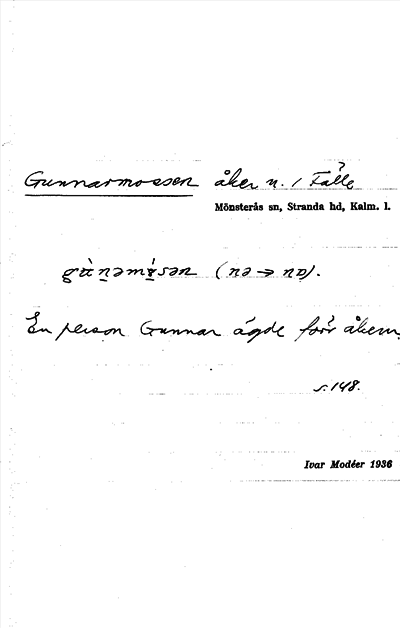 Gunnarmossen åker n. / Fälle
Mönsterås sn, Stranda hd, Kalm. l.
(nə → nɒ).
En person Gunnar ägde förr åkern.
s. 148.
Ivar Modéer 1936